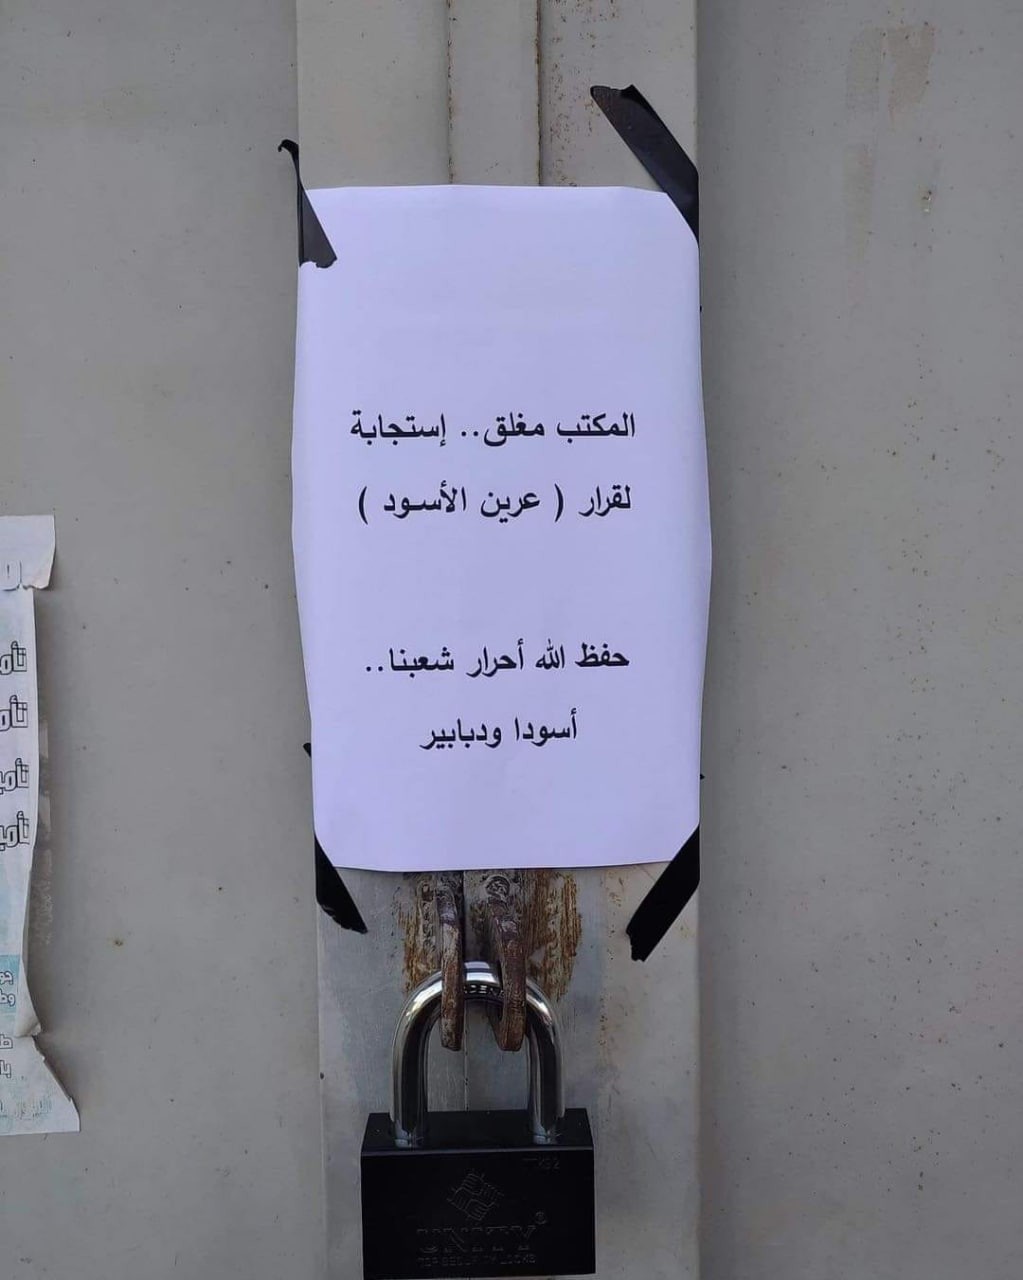 المكتب مغلق.. إستجابة
لقرار ( عرين الأسود )
حفظ الله أحرار شعبنا..
أسودا ودبابير
UNITY
TOP SECURITY LOCKS